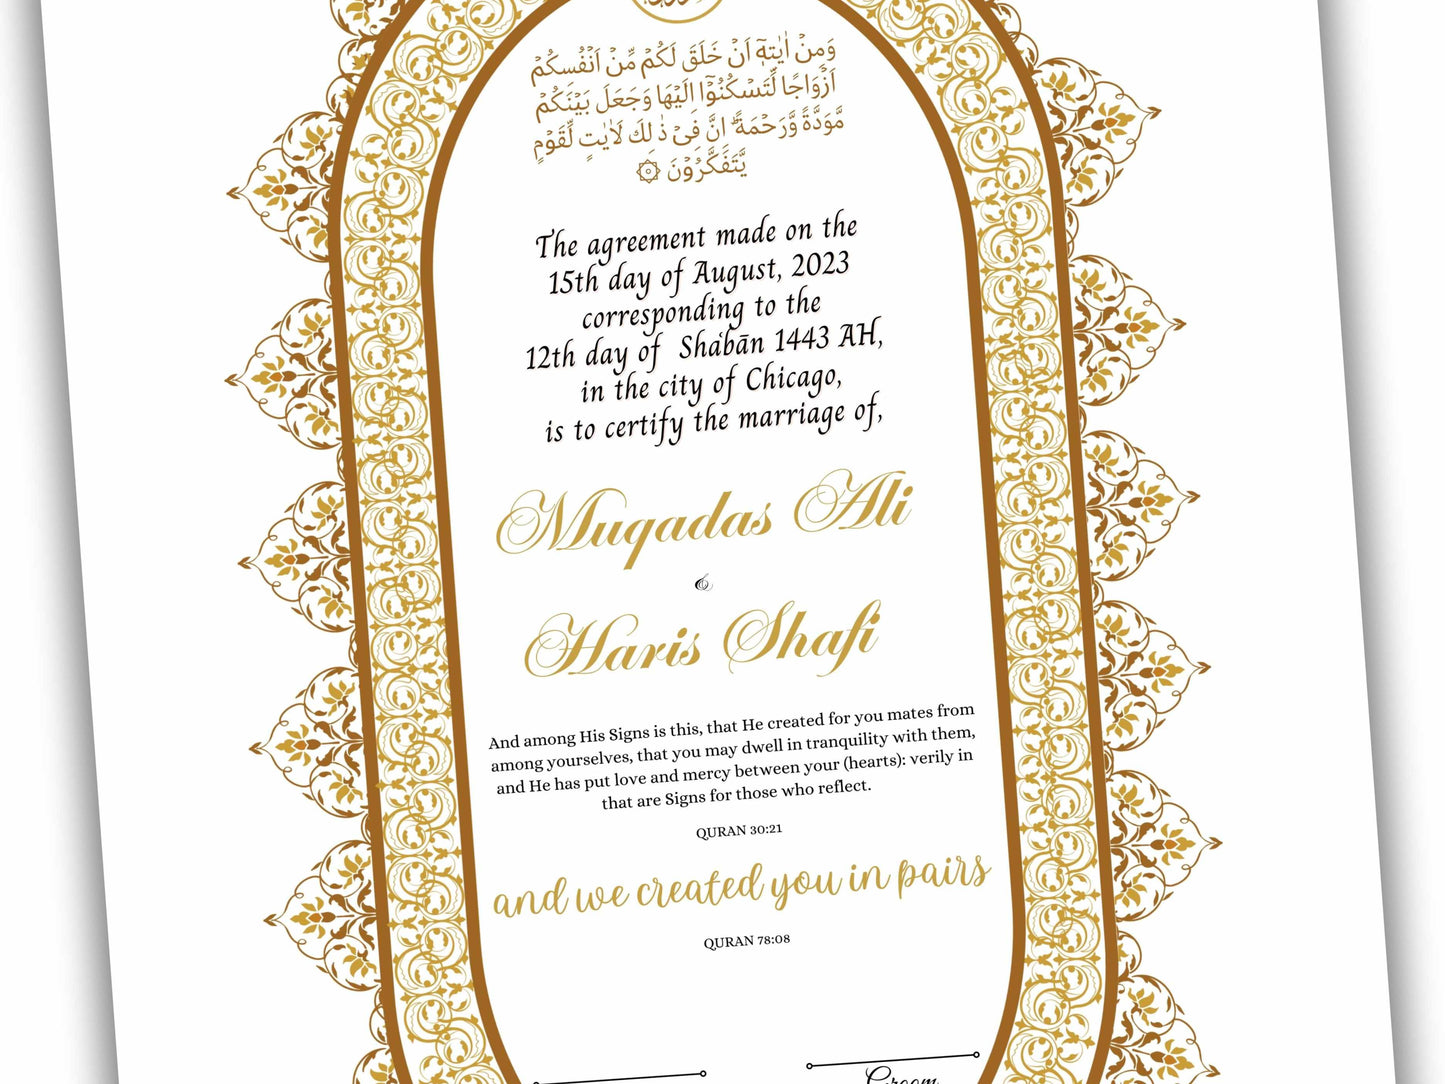 وَمِنْ اٰيٰتِهٖٓ اَنْ خَلَقَ لَكُمْ مِّنْ اَنْفُسِكُمْ
اَزْوَاجًا لِّتَسْكُنُوْٓا اِلَيْهَا وَجَعَلَ بَيْنَكُمْ
مَّوَدَّةً وَّرَحْمَةً ۗ اِنَّ فِيْ ذٰلِكَ لَاٰيٰتٍ لِّقَوْمٍ
يَّتَفَكَّرُوْنَ
The agreement made on the
15th day of August, 2023
corresponding to the
12th day of Shabān 1443 AH,
in the city of Chicago,
is to certify the marriage of,
Muqadas Ali
&
Haris Shafi
And among His Signs is this, that He created for you mates from
among yourselves, that you may dwell in tranquility with them,
and He has put love and mercy between your (hearts): verily in
that are Signs for those who reflect.
QURAN 30:21
and we created you in pairs
QURAN 78:08
Groom